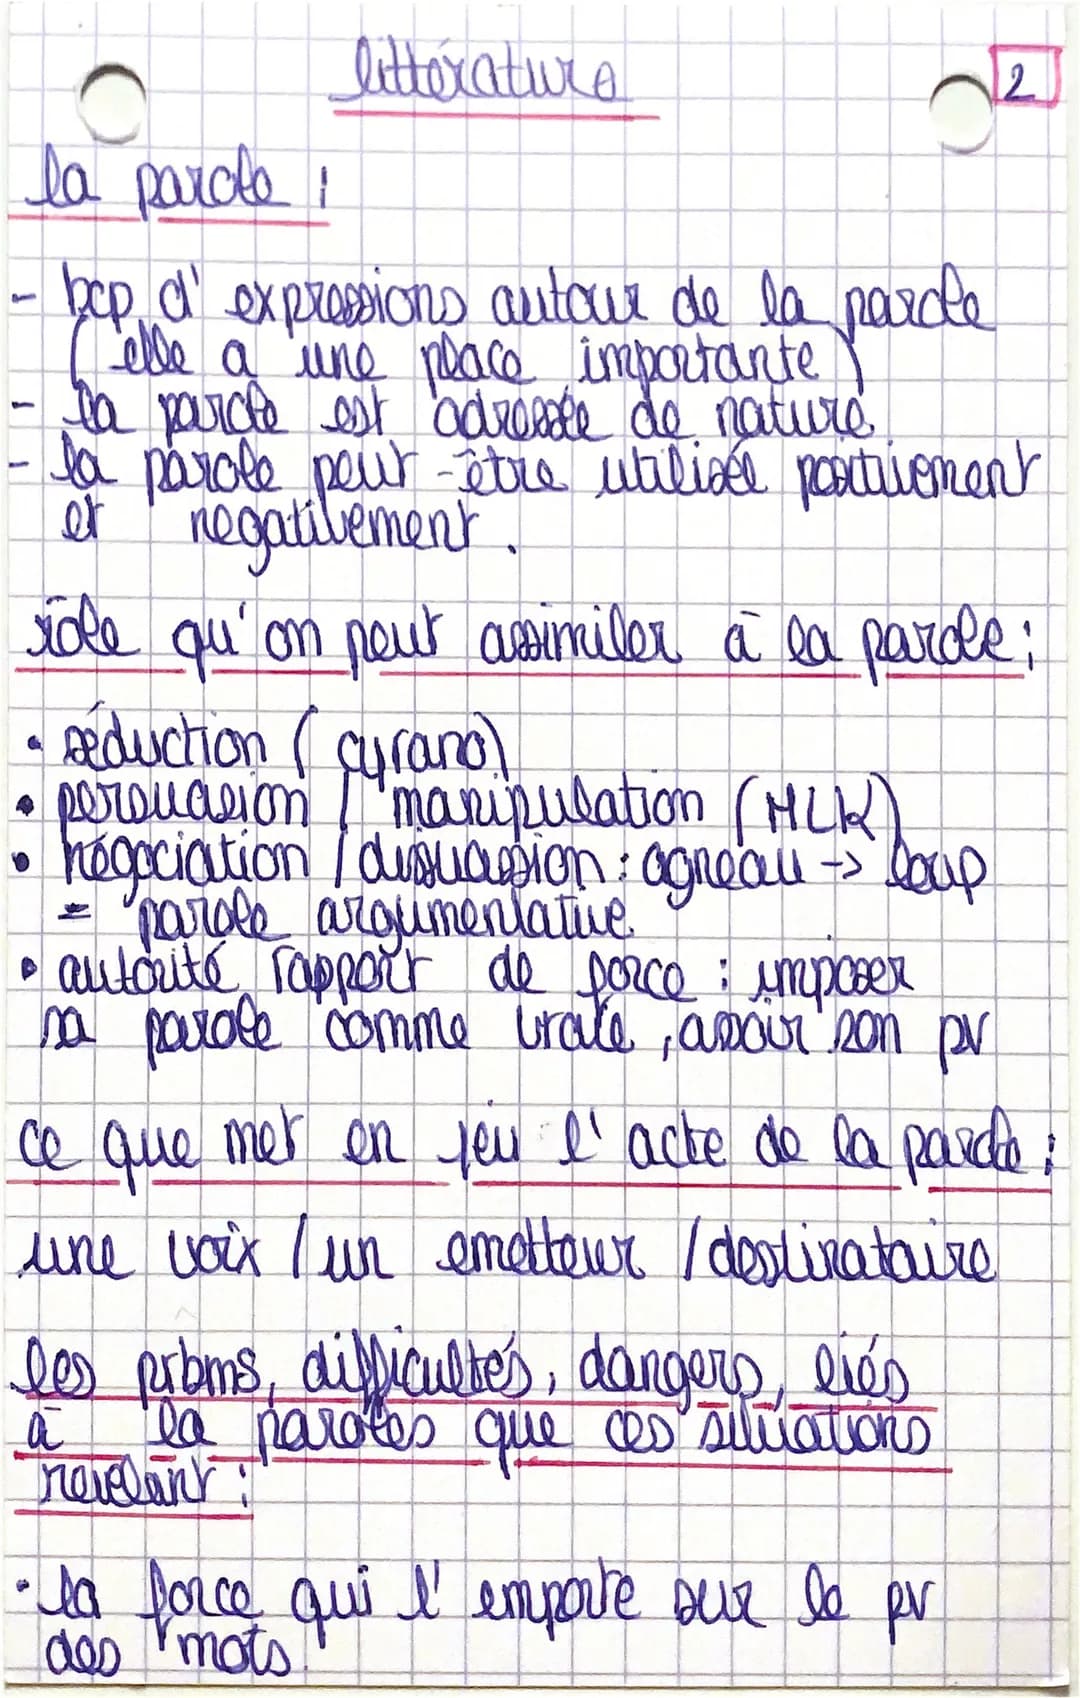 littérature
2
la parole :
- bcp d'expressions autour de la parole
( elle a une place importante )
- la parole est adressée de nature.
- la parole peut-être utilisée positivement
et negativement.
rôle qu'on peut assimiler à la parole :
• séduction ( cyrano )
• persuasion / manipulation ( MLK )
• négociation / dissuassion : agneau -> loup
= parole argumentative.
• autorité rapport de force : imposer
sa parole comme vraie, assoir son pv
ce que met en jeu l'acte de la parole :
une voix / un emetteur / destinataire
les prbms, difficultés, dangers, liés
à la paroles que ces situations
revelent :
• la force qui l'emporte sur le pv
des mots.